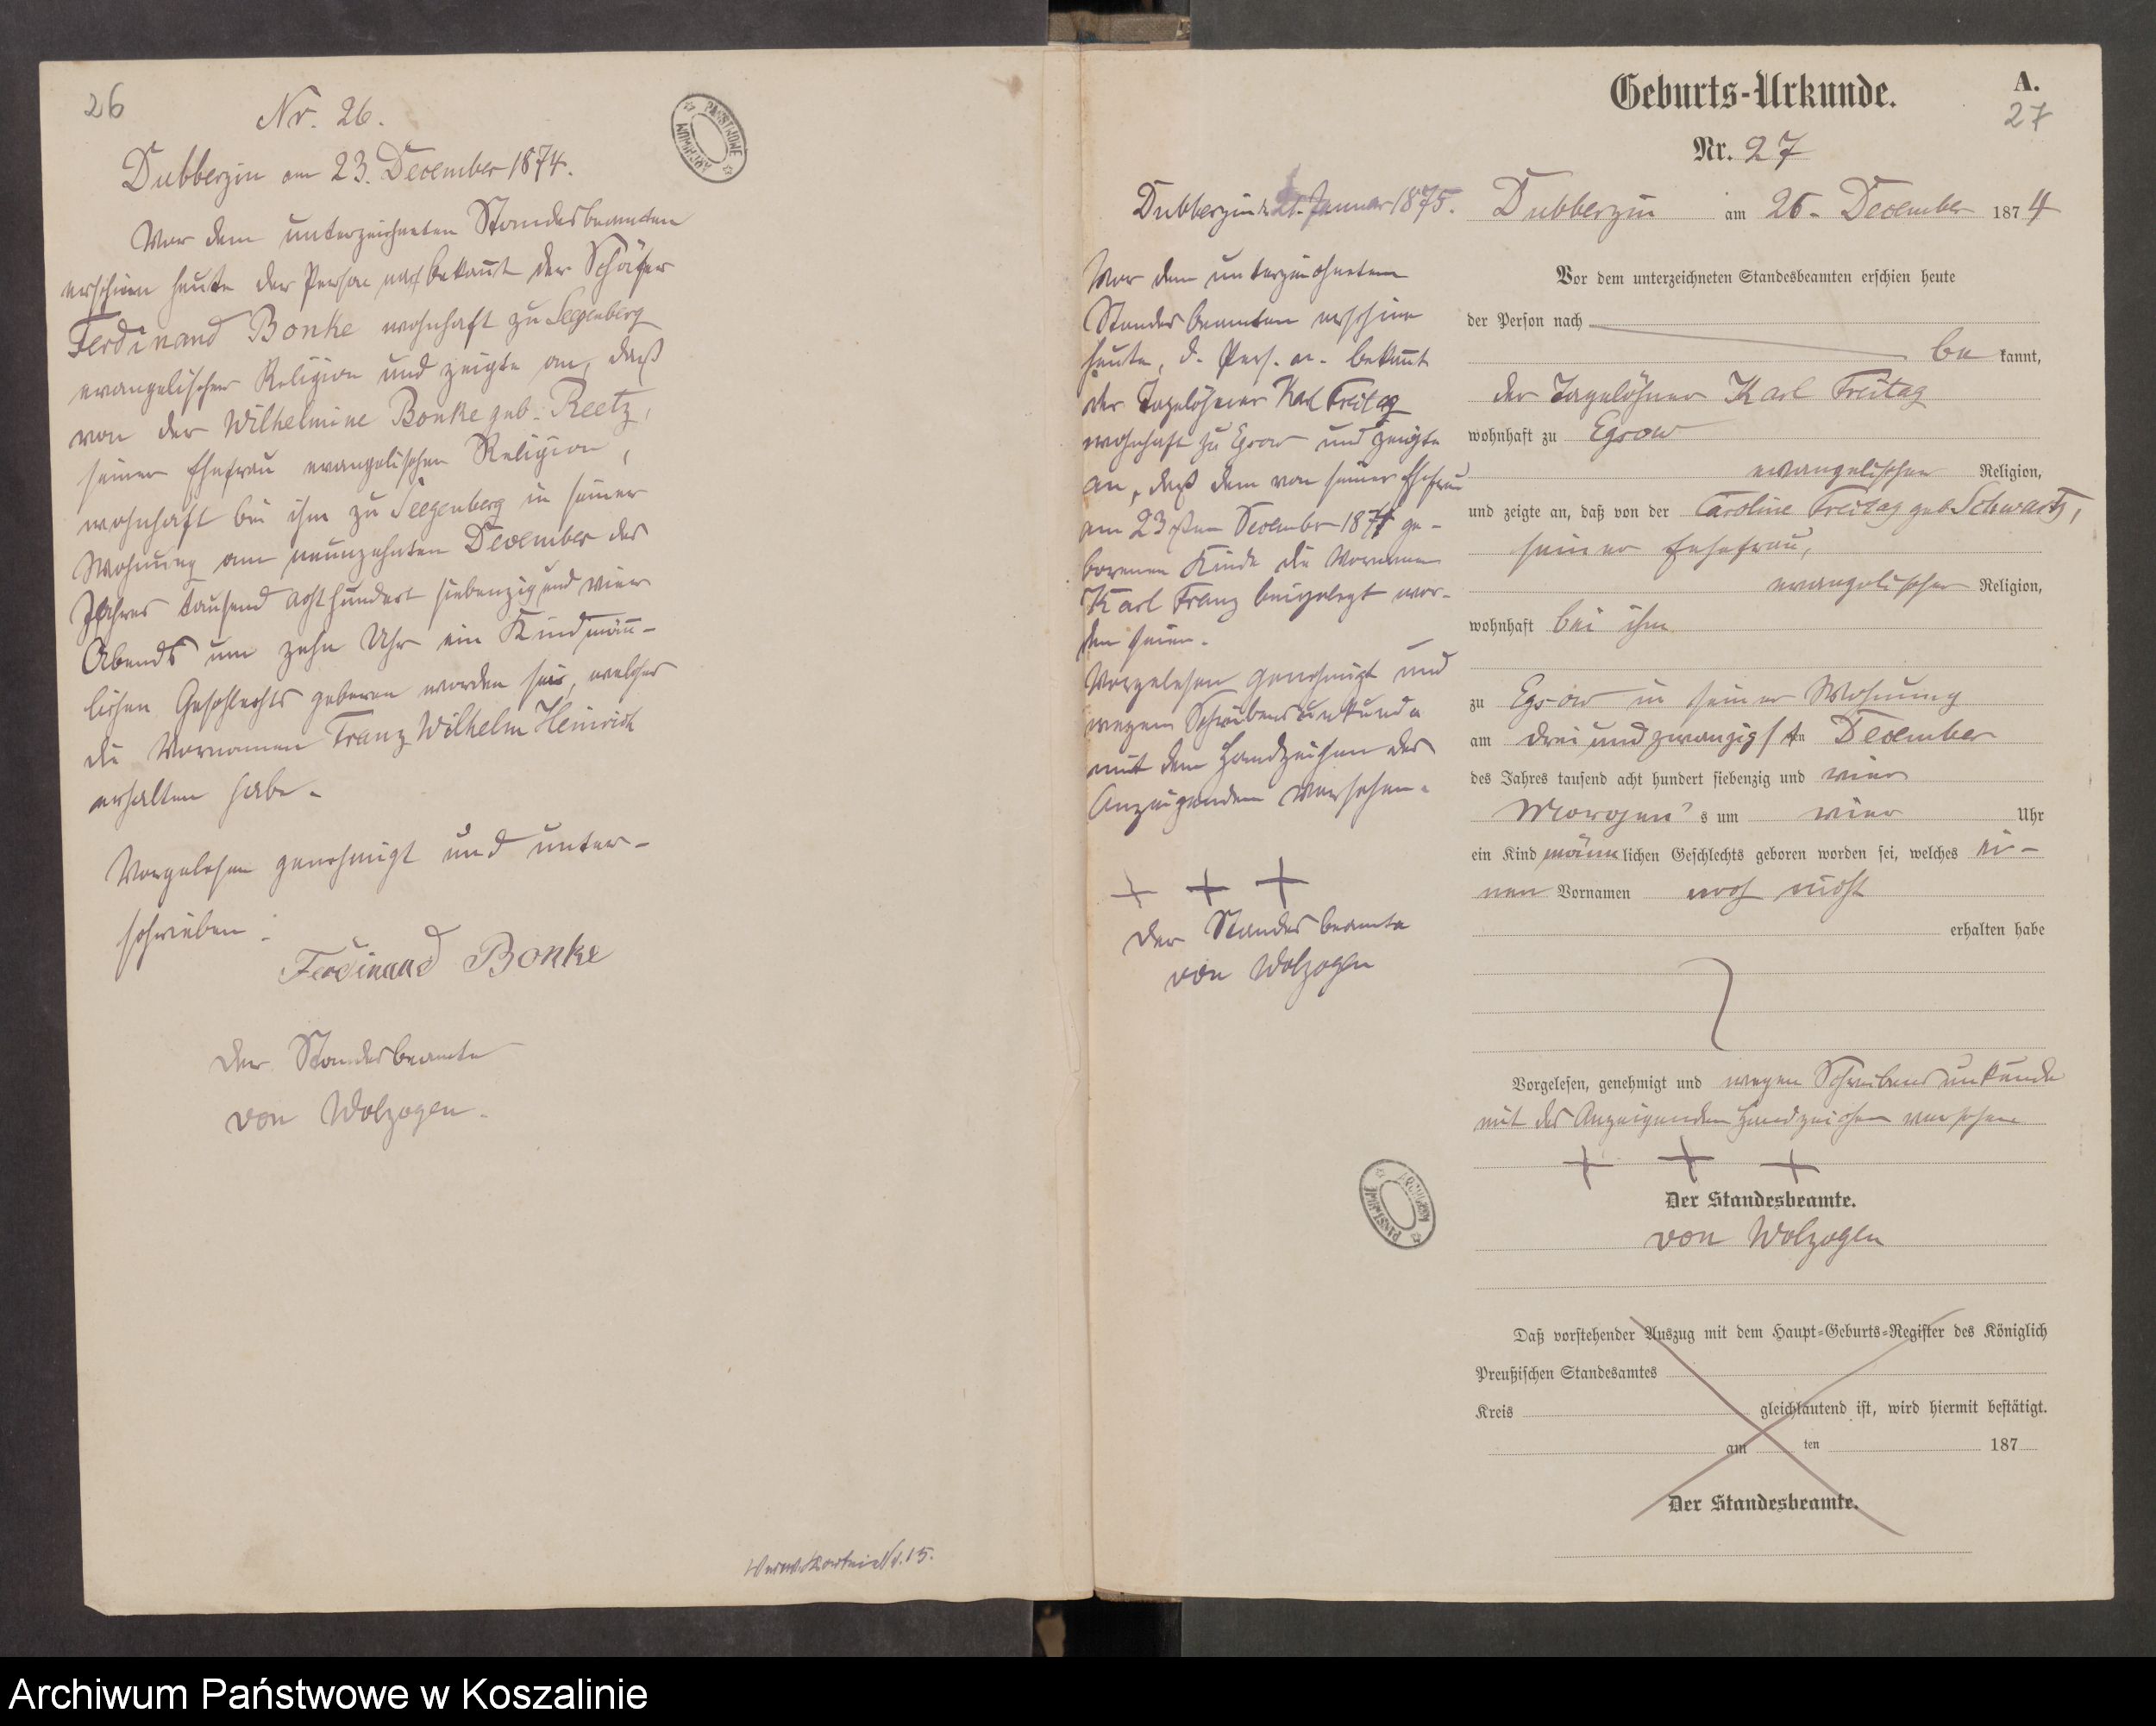 26
Nr. 26.
Dubberzin am 23. December 1874.
Vor dem unterzeichneten Standesbeamten
erschien heute der Person nach bekannt der Schäfer
Ferdinand Bonke wohnhaft zu Seegenberg
evangelischer Religion und zeigte an, daß
von der Wilhelmine Bonke geb. Reetz,
seiner Ehefrau evangelischer Religion,
wohnhaft bei ihm zu Seegenberg in seiner
Wohnung am neunzehnten December des
Jahres tausend acht hundert siebenzig und vier
Abends um zehn Uhr ein Kind männ-
lichen Geschlechts geboren worden sei, welches
die Vornamen Franz Wilhelm Heinrich
erhalten habe.
Vorgelesen genehmigt und unter-
schrieben:
Ferdinand Bonke
Der Standesbeamte
von Wolzogen.
ARCHIWUM PAŃSTWOWE
Dubberzin d. 21. Januar 1875.
Vor dem unterzeichneten
Standesbeamten erschien
heute, d. Pers. n. bekannt
der Tagelöhner Karl Freitag
wohnhaft zu Egsow und zeigte
an, daß dem von seiner Ehefrau
am 23sten December 1874 ge-
borenen Kinde die Vornamen
Karl Franz beigelegt wor-
den seien.
Vorgelesen genehmigt und
wegen Schreibensunkunde
mit dem Handzeichen des
Anzeigenden versehen.
+ + +
Der Standesbeamte
von Wolzogen
ARCHIWUM PAŃSTWOWE
Geburts-Urkunde.
A.
27
Nr. 27
Dubberzin am 26. December 1874
Vor dem unterzeichneten Standesbeamten erschien heute
der Person nach
bekannt,
der Tagelöhner Karl Freitag
wohnhaft zu Egsow
evangelischer Religion,
und zeigte an, daß von der Caroline Freitag geb. Schwartz,
seiner Ehefrau,
evangelischer Religion,
wohnhaft bei ihm
zu Egsow in seiner Wohnung
am drei und zwanzigsten December
des Jahres tausend acht hundert siebenzig und vier
Morgens um vier Uhr
ein Kind männlichen Geschlechts geboren worden sei, welches ei-
nen Vornamen noch nicht
erhalten habe
Vorgelesen, genehmigt und wegen Schreibensunkunde
mit des Anzeigenden Handzeichen versehen
+ + +
Der Standesbeamte.
von Wolzogen
Daß vorstehender Auszug mit dem Haupt-Geburts-Register des Königlich
Preußischen Standesamtes
Kreis gleichlautend ist, wird hiermit bestätigt.
am ten 187
Der Standesbeamte.
Archiwum Państwowe w Koszalinie